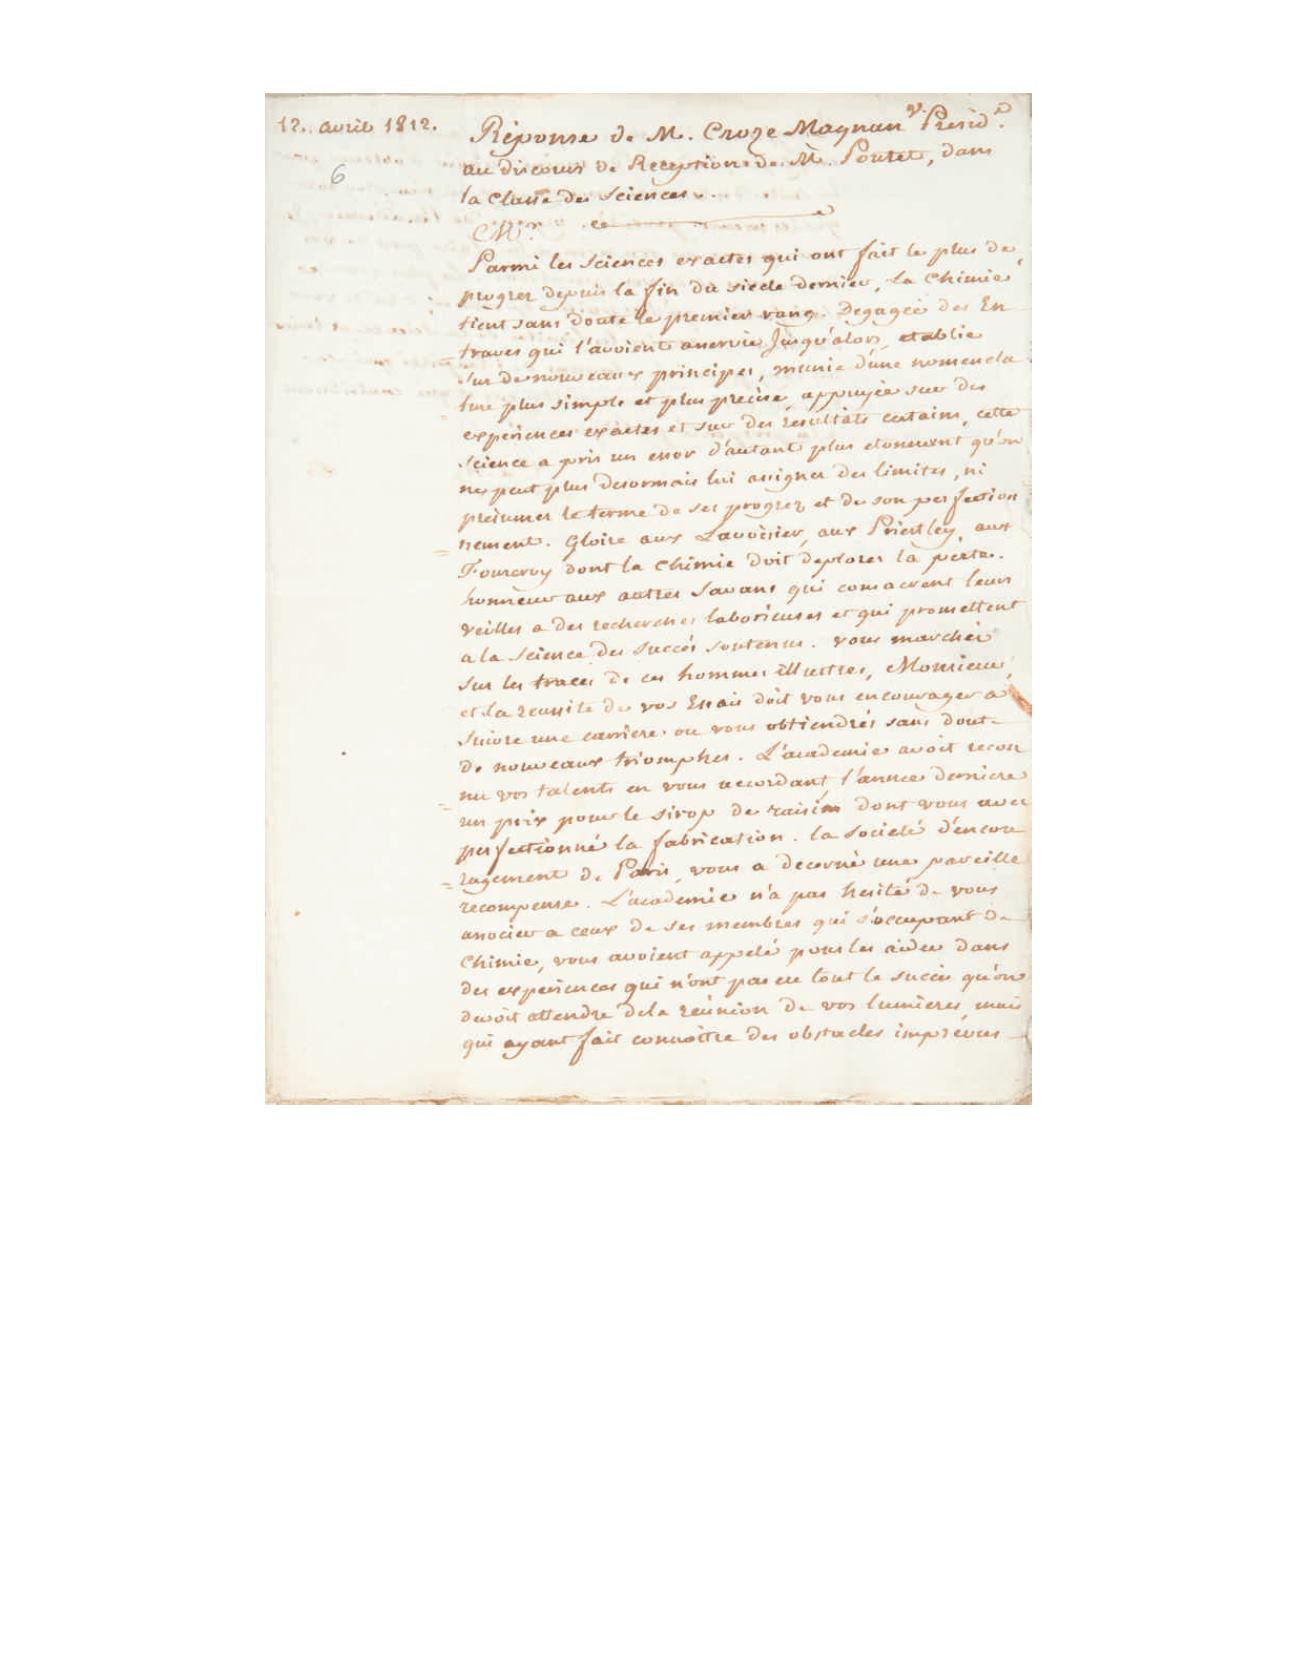 12. avril 1812.
6
Réponse de M. Croze Magnan v. Présid.
au discours de Reception de M. Poutet, dans
la Classe des Sciences.
Mr.
Parmi les Sciences exactes qui ont fait le plus de
progrez depuis la fin du siecle dernier, la Chimie
tient sans doute le premier rang. Degagée des En
traves qui l'avoient Jusqu'alors, etablie
sur de nouveaux principes, munie d'une nomencla
ture plus simple et plus precise, appuyée sur des
experiences exactes et sur des résultats certains, cette
Science a pris un essor d'autant plus etonnant qu'on
ne peut plus desormais lui assigner des limites, ni
présumer le terme de ses progrez et de son perfection
nement. Gloire aux Lavoisier, aux Priestley, aux
Fourcroy dont la Chimie doit deplorer la perte.
honneur aux autres Savans qui consacrent leurs
veilles a des recherches laborieuses et qui promettent
a la Science des succés soutenus. vous marchés
sur les traces de ces hommes illustres, Monsieur,
et la reussite de vos Essais doit vous encourager a
suivre une carriere ou vous obtiendrés sans doute
de nouveaux triomphes. L'academie avoit recon
nu vos talents en vous accordant l'année derniere
un prix pour le sirop de raisin dont vous avez
perfectionné la fabrication. la Societé d'encou
ragement de Paris, vous a decerné une pareille
recompense. L'academie n'a pas hesité de vous
associer a ceux de ses membres qui s'occupant de
Chimie, vous avoient appelé pour les aider dans
des experiences qui n'ont pas eu tout le succès qu'on
devoit attendre de la reúnion de vos lumieres, mais
qui ayant fait connoitre des obstacles imprévus